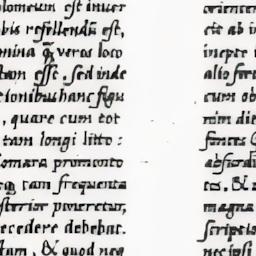 olomeum est inuer
bis refellendū est,
mina q̃ veros loco
tam esse. sed inde
etionibus hanc figu
, quare cum tot
tam longi litto:
omara promonto
tam frequenta
sterior poneretur,
ecedere debebat.
tum, & quod neq
orienter
etē ab in
inepte
alio for
cum ob
rum die
fontes G
absurdi
tes, & a
magna
scriptio
nec ipsi